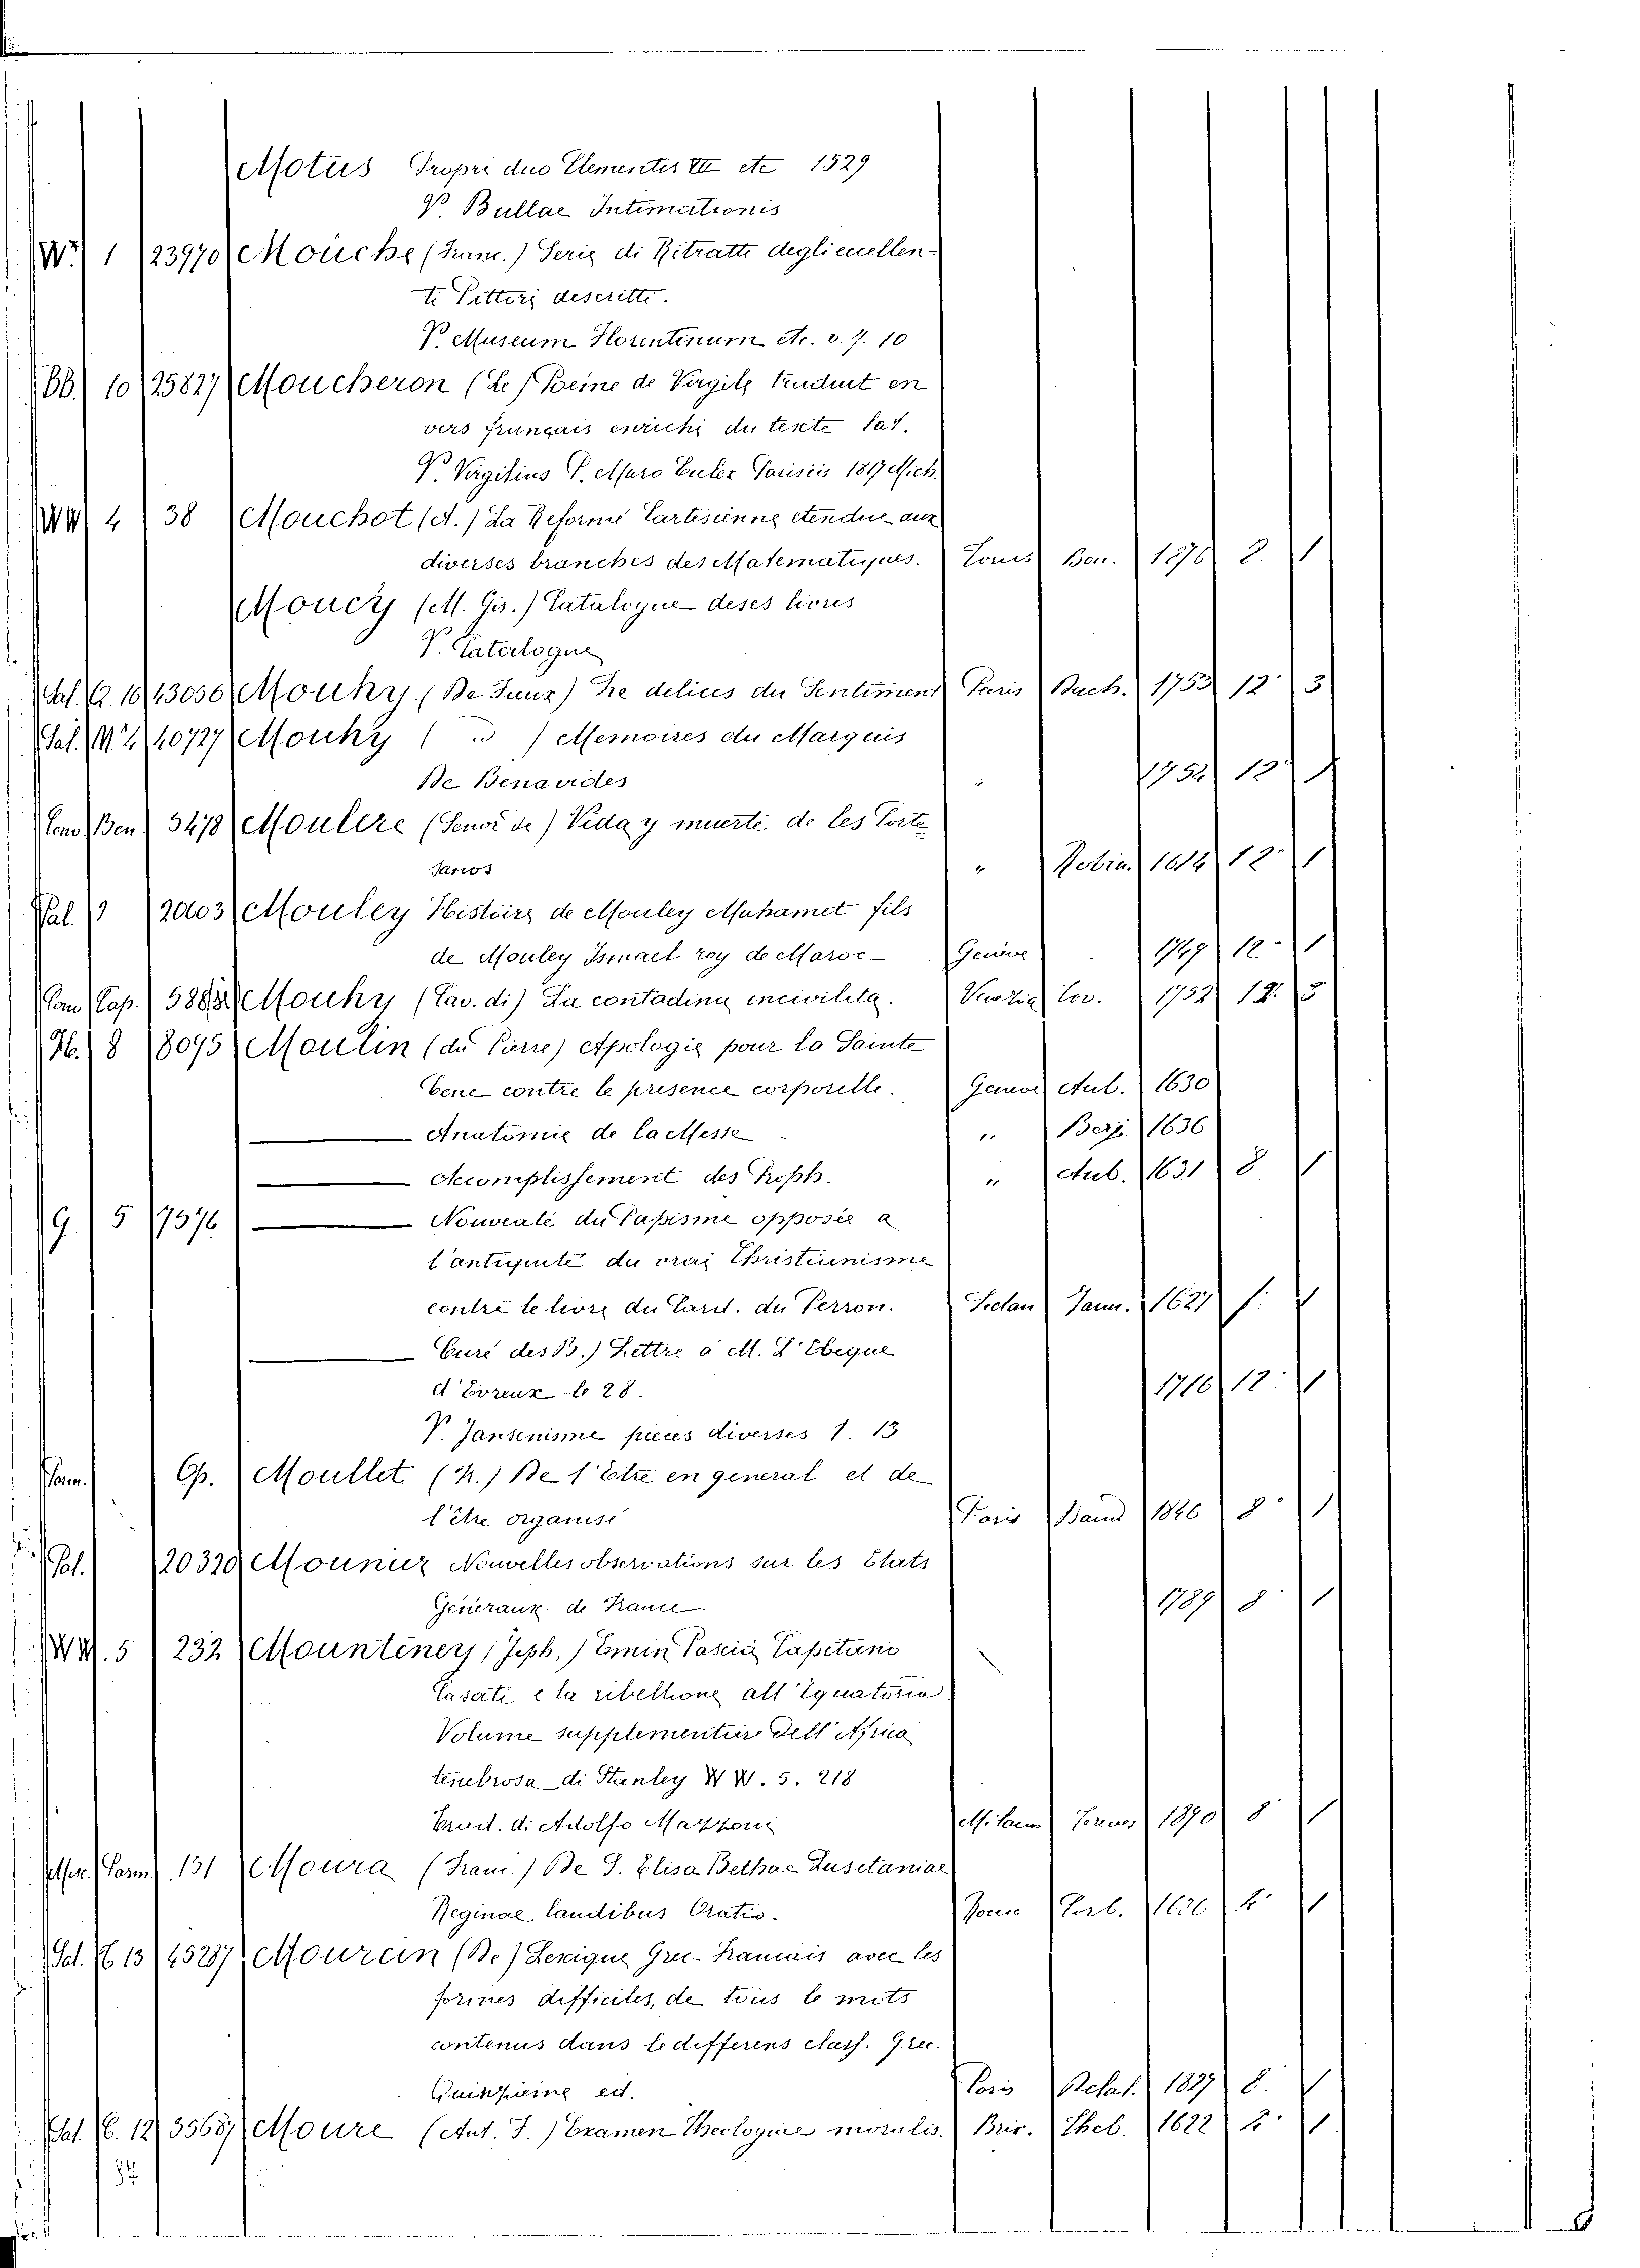 Motus Propri duo Clementis VII etc 1529
V. Bullae Intimationis
W. 1 23970 Mouche (Franc.) Serie di Ritratti degli eccellen-
ti Pittori descritti.
V. Museum Florentinum etc. v. 7. 10
BB. 10 25827 Moucheron (Le) Poeme de Virgile traduit en
vers français enrichi du texte lat.
V. Virgilius P. Maro Euler Parisiis 1817 Mich.
WW 4 38 Mouchot (A.) La Reforme Cartesienne etendue aux
diverses branches des Matematiques. 1876 8. 1
Moucy (M. Gis.) Catalogue de ses livres
V. Catalogue
Sal. G. 10 43050 Mouhy (De ) Le delices du Sentiment Paris Buch. 1753 12. 3
Sal. M. 2 40727 Mouhy ( " ) Memoires du Marquis
De Benavides " 1754 12. 1
Ben 3478 Moulere (Senor de) Vida y muerte de les Corte
sanos " Robin. 1614 12. 1
Sal. 20003 Mouley Histoire de Mouley Mahamet fils
de Mouley Ismael roy de Maroc Geneve 1749 12. 1
Cam Cap. Mouhy (Cav. di) La contadina incivilita. Venezia Cor. 1752 12. 3
H. 8 8095 Moulin (du Pierre) Apologie pour la Sainte
Cene contre le presence corporelle. Geneve Aub. 1630
Anatomie de la Messe " Berj. 1636
Accomplissement des Proph. " Aub. 1631 8 1
G. 5 7576 Nouveaté du Papisme opposée a
l'antiquité du vrai Christianisme
contre le livre du Card. du Perron. Sedan Jann. 1627 f. 1
Curé des B.) Lettre à M. L'Ebeque
d'Evreux le 28. 1718 12. 1
V. Jansenisme pieces diverses 1. 13
Op. Moullet (R.) De l'Etre en general et de
l'être organisé Paris 8. 1
Sal. 20320 Mounier Nouvelles observations sur les Etats
Generaux de France. 1789 8. 1
WW. 5 232 Mounteney (Jeph.) Emin Pascia Capitano
Casati e la ribellione all'Equatoria.
Volume supplementare dell'Africa
tenebrosa di Stanley WW. 5. 218
trad. di Adolfo Mazzoni Milano 1890 8. 1
131 Moura (Franc.) De S. Elisabethae Lusitaniae
Reginae laudibus Oratio. Roma Corb. 1626 4. 1
Sal. G. 13 45287 Mourcin (De) Lexique Grec-Francais avec les
formes difficiles, de tous le mots
contenus dans le differens class. Grec.
Quinzieme ed. Paris Delal. 1837 8. 1
Sal. G. 12 35687 Moure (Ant. F.) Examen Theologiae moralis. Brix. Theb. 1622 2. 1